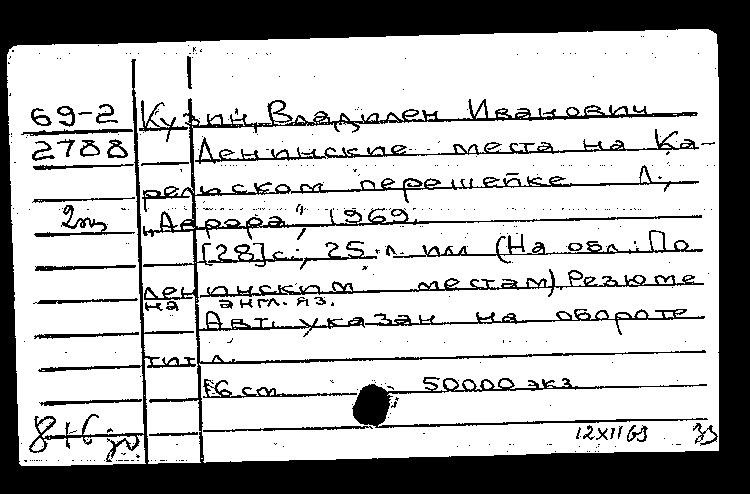 69-2 Кузин, Владилен Иванович
2788 Ленинские места на Ка-
рельском перешейке Л.,
2 экз „Аврора", 1969.
[28]с., 25 л. илл (На обл.: По
ленинским местам). Резюме
на англ. яз.
Авт. указан на обороте
тит л.
16 cm 50000 экз.
8+6
12 XII 69